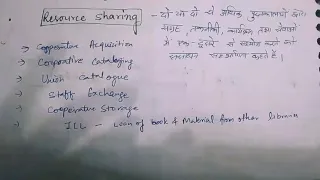 Resource sharing - दो या दो से अधिक पुस्तकालयों द्वारा
संग्रह, तकनीकी, कार्यक्रम तथा सेवाओं
में एक-दूसरे से
→ Cooperative Acquisition
→ Cooperative Cataloging
→ Union Catalogue
→ Staff Exchange
→ Cooperative Storage
→ ILL - Loan of book & Material from other libraries